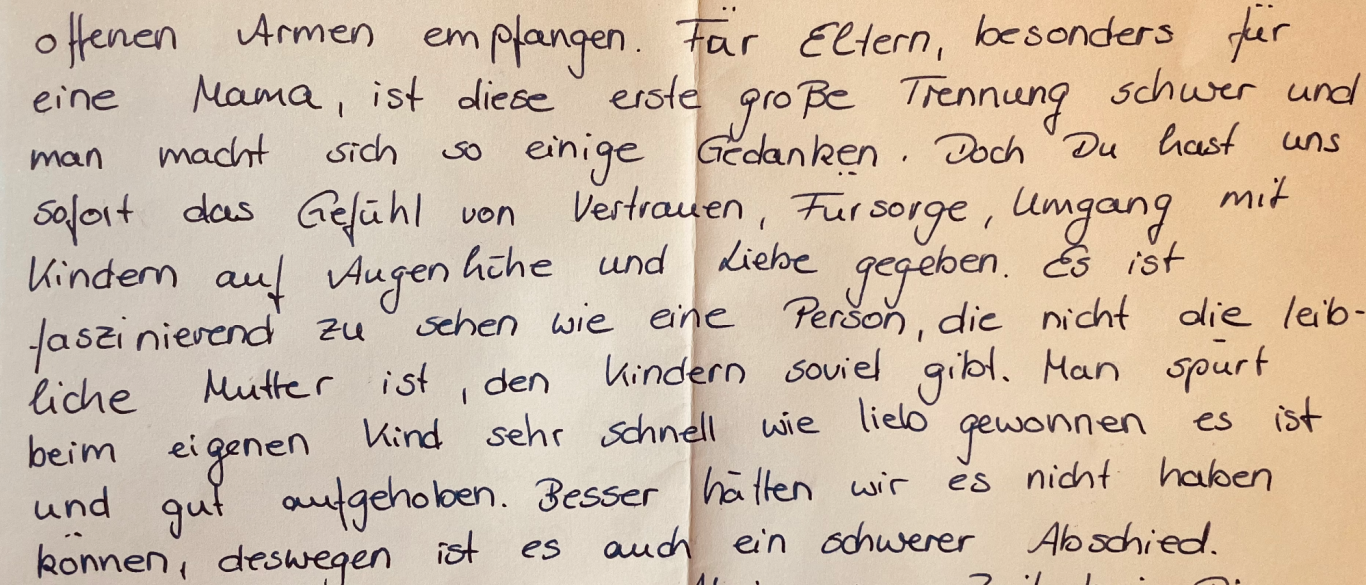 offenen Armen empfangen. Für Eltern, besonders für
eine Mama, ist diese erste große Trennung schwer und
man macht sich so einige Gedanken. Doch Du hast uns
sofort das Gefühl von Vertrauen, Fürsorge, Umgang mit
Kindern auf Augenhöhe und Liebe gegeben. Es ist
faszinierend zu sehen wie eine Person, die nicht die leib-
liche Mutter ist, den Kindern soviel gibt. Man spürt
beim eigenen Kind sehr schnell wie lieb gewonnen es ist
und gut aufgehoben. Besser hätten wir es nicht haben
können, deswegen ist es auch ein schwerer Abschied.